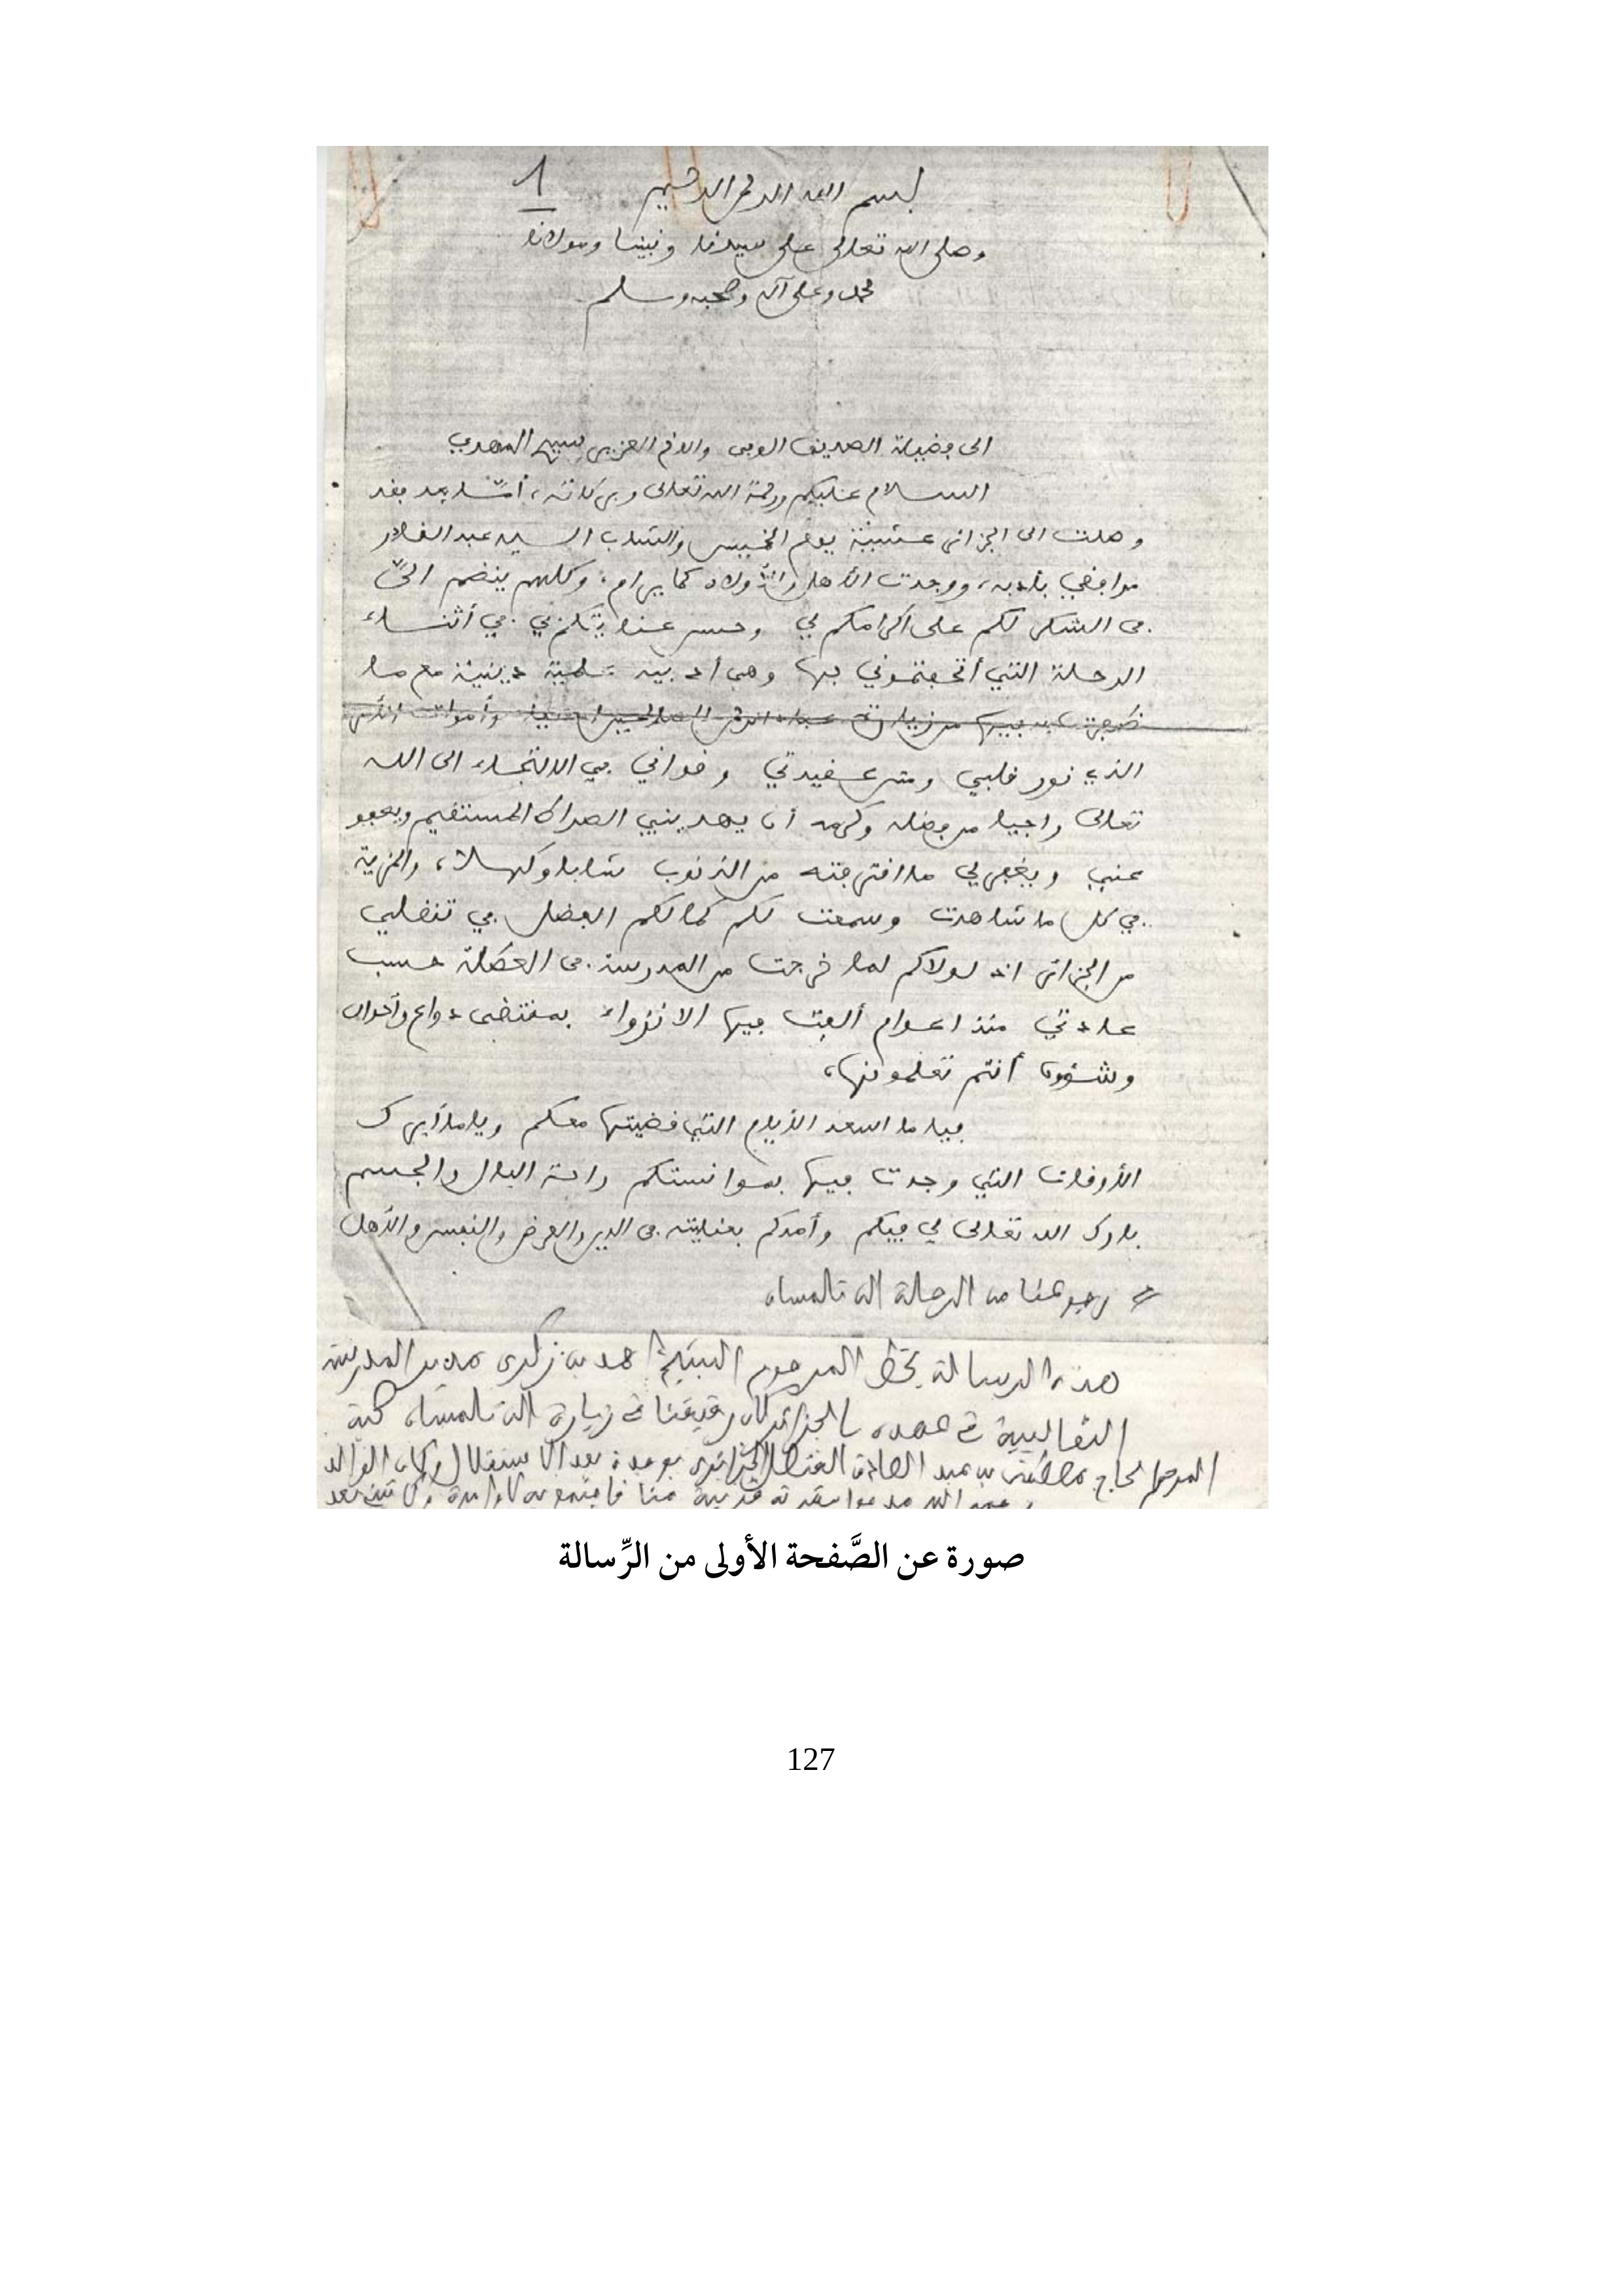 1
بسم الله الرحمن الرحيم
وصلى الله تعالى على سيدنا ونبينا ومولانا
محمد وعلى آله وصحبه وسلم
الى فضيلة الصديق الوفي والاخ العزيز سيدي المهدي
السلام عليكم ورحمة الله تعالى وبركاته، أمّا بعد فقد
وصلت الى الجزائر عشيّة يوم الخميس والشاب السيد عبد القادر
مرافقي بأدبه، ووجدت الأهل والأولاد كما يرام، وكلهم ينضم اليّ
في الشكر لكم على اكرامكم لي وحسن عنايتكم بي في أثناء
الرحلة التي أتحفتموني بها وهي أدبية علمية دينية مع ما
الذي نور قلبي ومتن عقيدتي وقواني في الالتجاء الى الله
تعالى راجيا من فضله وكرمه أن يهديني الصراط المستقيم ويعفو
عني ويغفر لي ما اقترفته من الذنوب شابا وكهلا، والمزية
في كل ما شاهدت وسمعت لكم كما لكم الفضل في تنقلي
من الجزائر اذ لولاكم لما خرجت من المدرسة في العطلة حسب
عادتي منذ اعوام ألفت فيها الانزواء بمقتضى دواع وأحوال
وشؤون أنتم تعلمونها،
فيا ما اسعد الأيام التي قضيتها معكم ويا ما أبرك
الأوقات التي وجدت فيها بموانستكم راحة البال والجسم
بارك الله تعالى لي فيكم وأمدكم بعنايته في الدين والعرض والنفس والأهل
رجوعنا من الرحلة الى تلمسان
هذه الرسالة بخط المرحوم الشيخ أحمد بن زكري مدير المدرسة
الثعالبية في عهده بالجزائر كان رفيقنا في زيارة الى تلمسان
المرحوم الحاج مصطفى بن عبد الصادق القنصل الجزائري بوجدة بعد الاستقلال وكان الوالد
صورة عن الصَّفحة الأولى من الرِّسالة
127